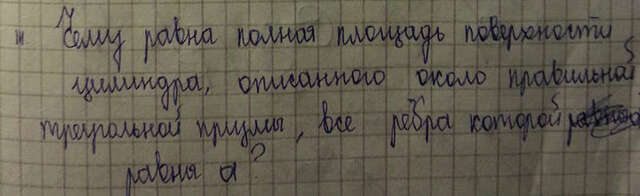 " Чему равна полная площадь поверхности
цилиндра, описанного около правильной
треугольной призмы, все рёбра которой
равны a?